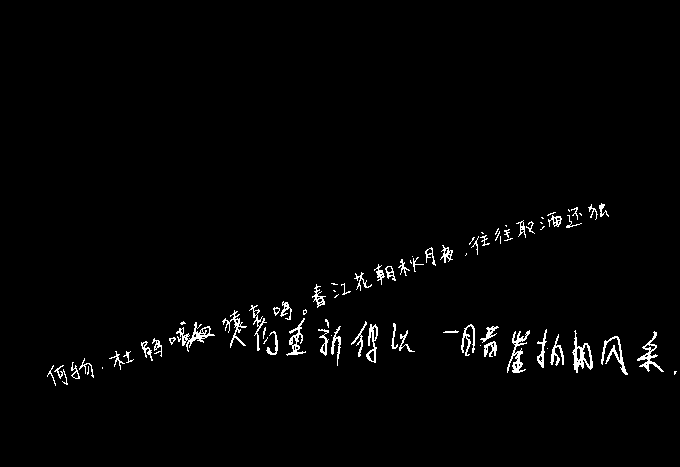 何物,杜鹃啼血猿哀鸣。春江花朝秋月夜,往往取酒还独
人们重新得以一睹崖柏的风采,